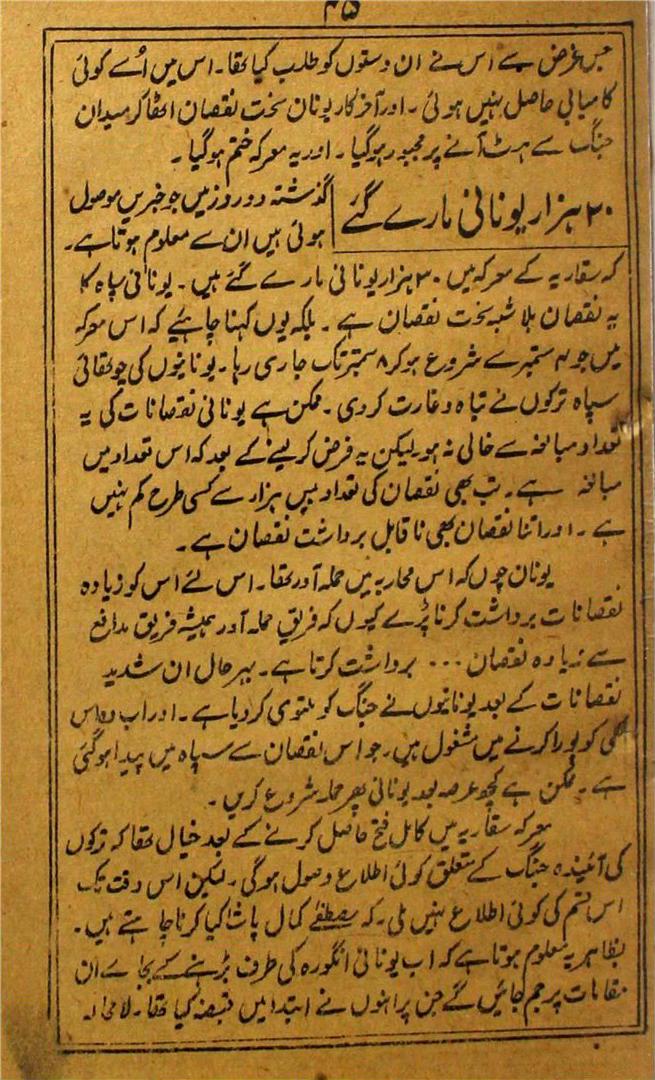 ۴۵
جس غرض سے اس نے ان دستوں کو طلب کیا تھا۔ اس میں اُسے کوئی
کامیابی حاصل نہیں ہوئی۔ اور آخر کار یونان سخت نقصان اٹھا کر میدان
جنگ سے ہٹ آنے پر مجبور ہو گیا۔ اور یہ معرکہ ختم ہو گیا۔
۲۰ ہزار یونانی مارے گئے
گذشتہ دو روز میں جو خبریں موصول
ہوئی ہیں ان سے معلوم ہوتا ہے۔
کہ سقاریہ کے معرکہ میں ۳۰ ہزار یونانی مارے گئے ہیں۔ یونانی سپاہ کا
یہ نقصان بلا شبہ سخت نقصان ہے۔ بلکہ یوں کہنا چاہئیے کہ اس معرکہ
میں جو ۴ ستمبر سے شروع ہو کر ۸ ستمبر تک جاری رہا۔ یونانیوں کی چوتھائی
سپاہ ترکوں نے تباہ و غارت کر دی۔ ممکن ہے یونانی نقصانات کی یہ
تعداد مبالغہ سے خالی نہ ہو لیکن یہ فرض کر لینے کے بعد کہ اس تعداد میں
مبالغہ ہے۔ تب بھی نقصان کی تعداد بیس ہزار سے کسی طرح کم نہیں
ہے۔ اور اتنا نقصان بھی ناقابل برداشت نقصان ہے۔
یونان چوں کہ اس محاربہ میں حملہ آور تھا۔ اس لئے اس کو زیادہ
نقصانات برداشت کرنا پڑے کیوں کہ فریق حملہ آور ہمیشہ فریق مدافع
سے زیادہ نقصان ... برداشت کرتا ہے۔ بہر حال ان شدید
نقصانات کے بعد یونانیوں نے جنگ کو ملتوی کر دیا ہے۔ اور اب وہ اس
کمی کو پورا کرنے میں مشغول ہیں۔ جو اس نقصان سے سپاہ میں پیدا ہو گئی
ہے۔ ممکن ہے کچھ عرصہ بعد یونانی پھر حملہ شروع کریں۔
معرکہ سقاریہ میں کامل فتح حاصل کرنے کے بعد خیال تھا کہ ترکوں
کی آئیندہ جنگ کے متعلق کوئی اطلاع وصول ہوگی۔ لیکن اس وقت تک
اس قسم کی کوئی اطلاع نہیں ملی۔ کہ مصطفےٰ کمال پاشا کیا کرنا چاہتے ہیں۔
بظاہر یہ معلوم ہوتا ہے کہ اب یونانی انگورہ کی طرف بڑہنے کے بجائے ان
مقامات پر جم جائیں گے جن پر انہوں نے ابتدا میں قبضہ کیا تھا۔ لامحالہ